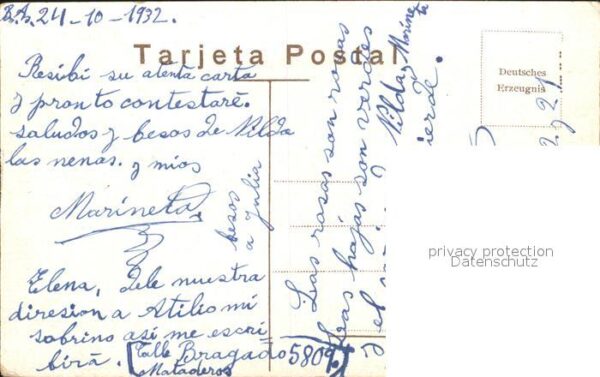 B.A. 24-10-1932.
Tarjeta Postal
Resibí su atenta carta
y pronto contestaré.
saludos y besos de Nilda
las nenas. y mios
Marineta.
besos
a Julia
Elena, Dele nuestra
diresion a Atilio mi
sobrino asi me escri
birá. [Calle Bragado 5809
Mataderos
Las rosas son rosas
las hojas son verdes
y el
Nilda y Marineta
Deutsches
Erzeugnis
privacy protection
Datenschutz